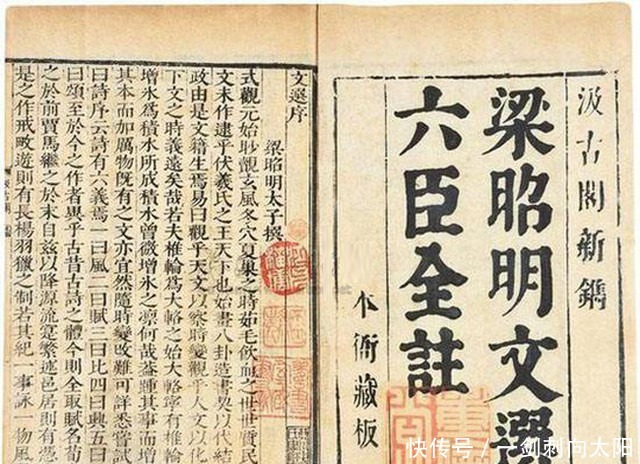 汲古閣新鐫
梁昭明文選
六臣全註
本衙藏板
文選序
梁昭明太子撰
式觀元始眇覿玄風冬穴夏巢之時茹毛飲血之世世質民
文未作逮乎伏羲氏之王天下也始畫八卦造書契以代結
政由是文籍生焉易曰觀乎天文以察時變觀乎人文以化
下文之時義遠矣哉若夫椎輪為大輅之始大輅寧有椎輪
增冰為積水所成積水曾微增冰之凜何哉蓋踵其事而增
其本而加厲物既有之文亦宜然隨時變改難可詳悉嘗試
曰詩序云詩有六義焉一曰風二曰賦三曰比四曰興五曰
曰頌至於今之作者異乎古昔古詩之體今則全取賦名荀
之於前賈馬繼之於末自茲以降源流寔繁述邑居則有憑
是之作戒畋遊則有長楊羽獵之制若其紀一事詠一物風
快传号/一剑刺向太阳